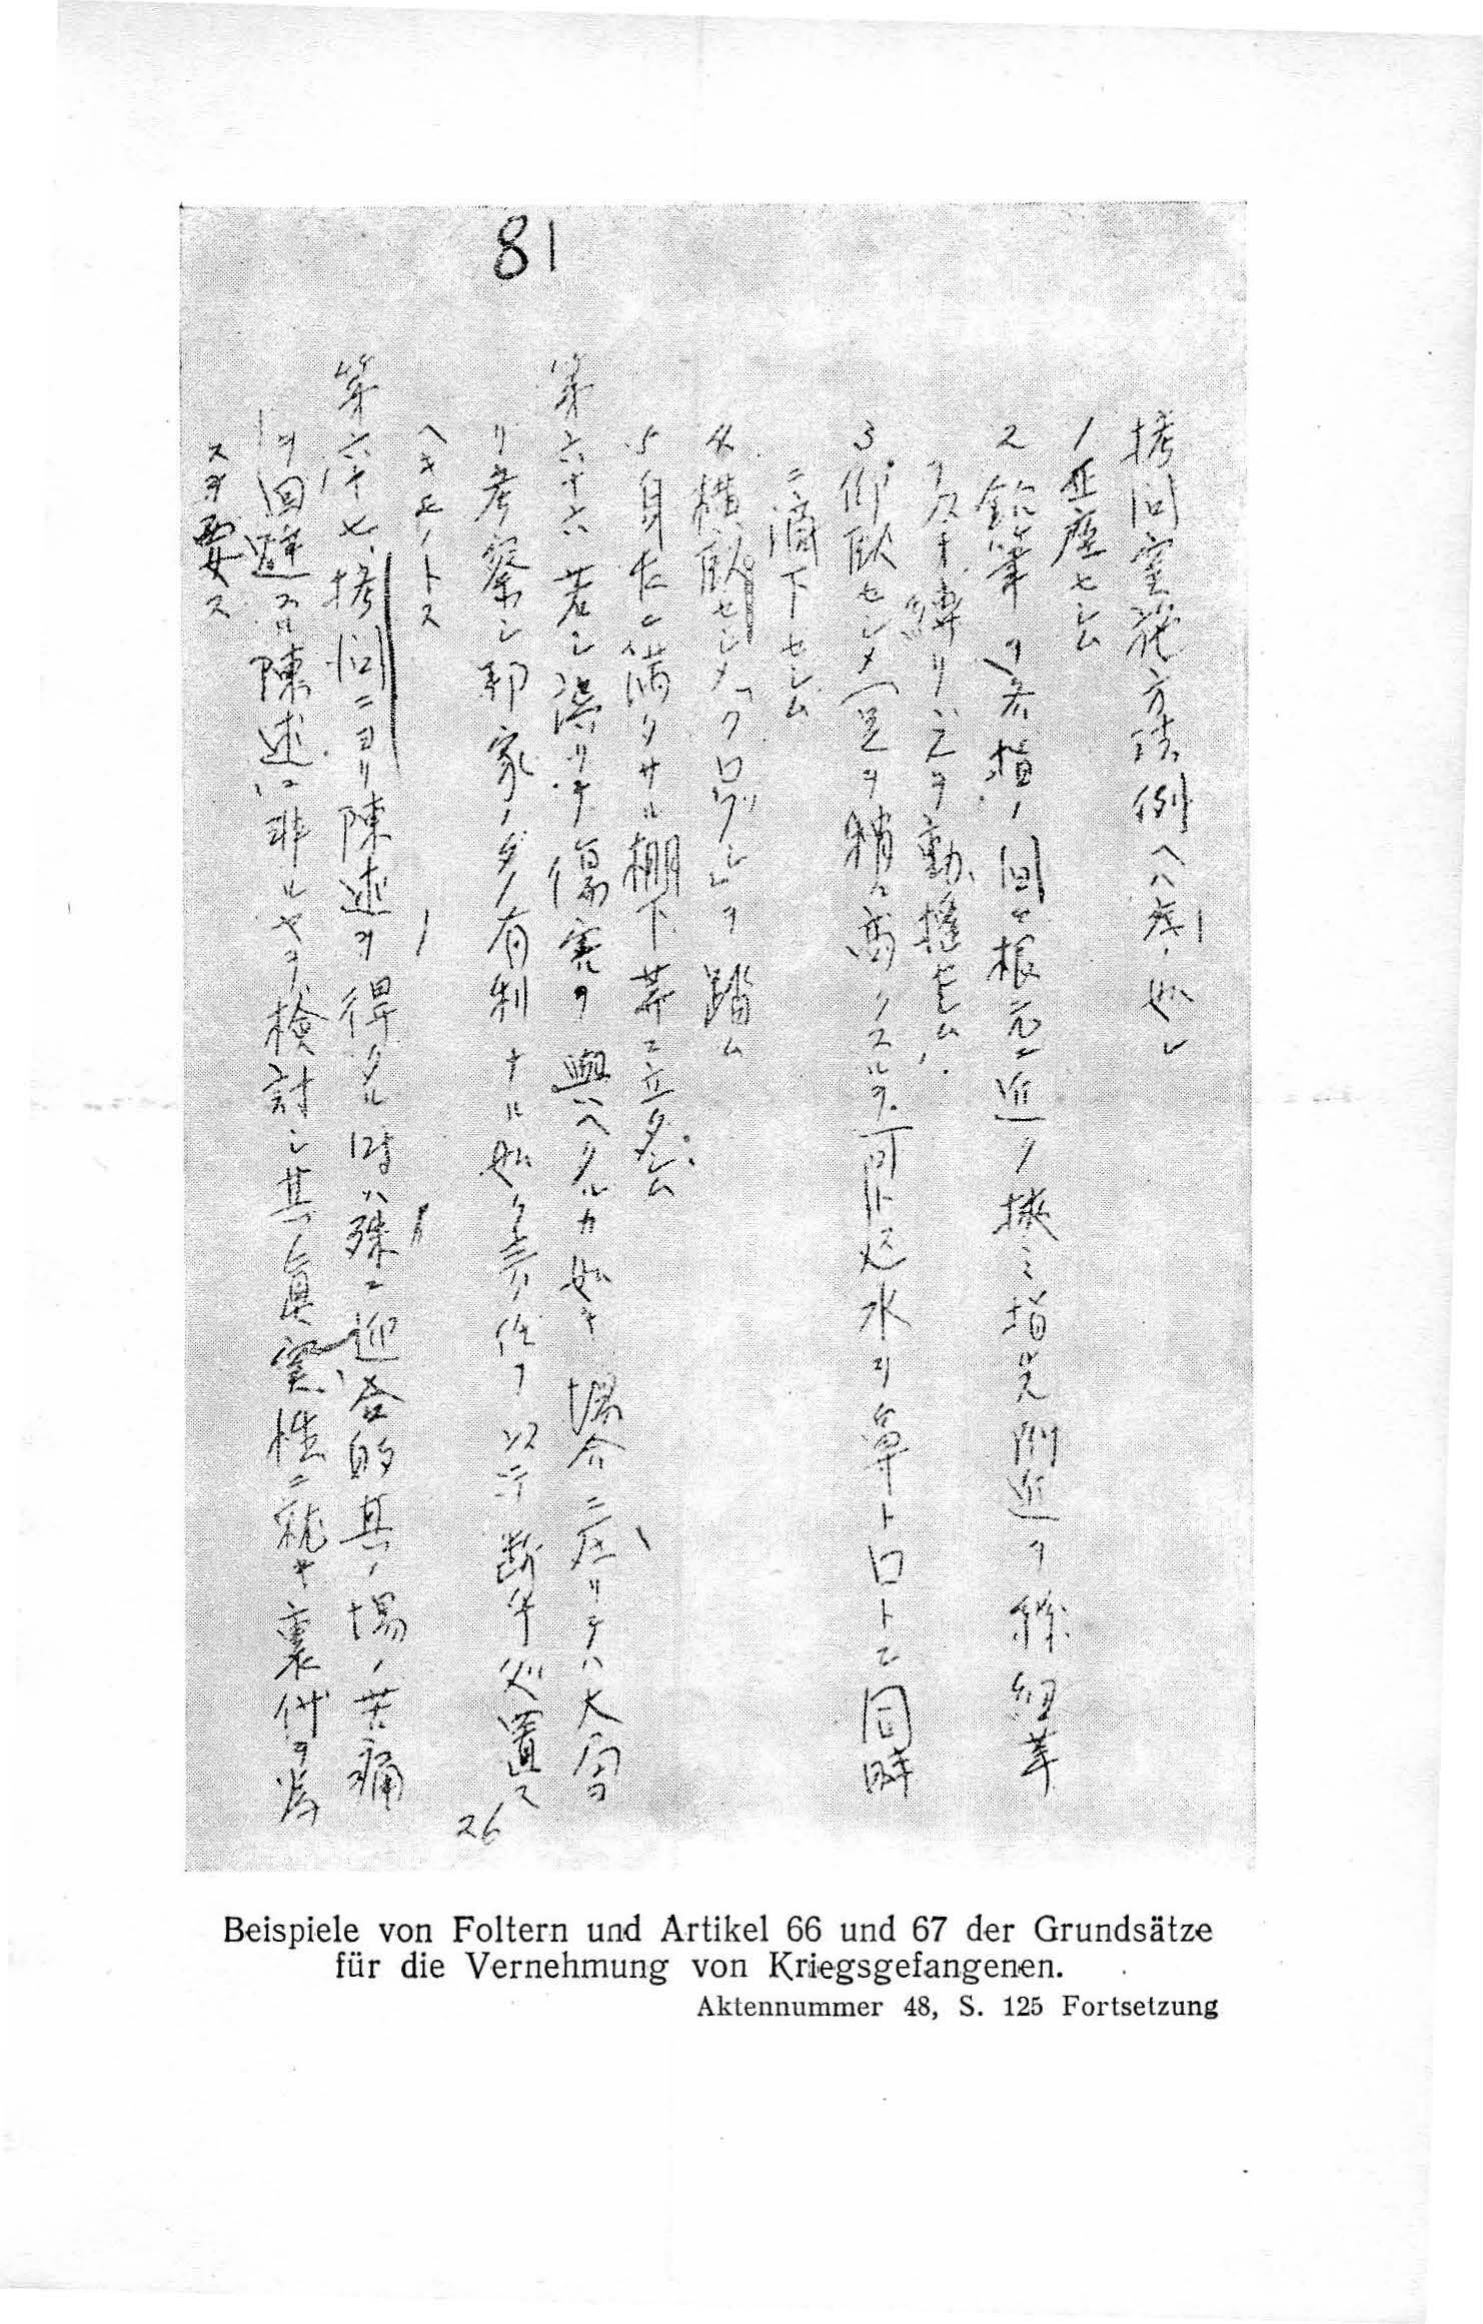 81
拷問実施方法例ヘハ左ノ如シ
1 正座セシム
2 鉛筆ヲ各指ノ間ノ根元ニ近ク挟ミ指先附近ヲ絲紐等
ヲ以テ縛リ之ヲ動揺セシム
3 仰臥セシメ(足ヲ稍々高クスルヲ可トス)水ヲ鼻ト口トニ同時
ニ滴下セシム
4 横臥セシメ「クロブシ」ヲ踏ム
5 身丈ニ満タサル棚下等ニ立タシム
第六十六 若シ誤リテ傷害ヲ與ヘタルカ如キ場合ニ在リテハ大局
リ考察シ邦家ノタメ有利ナル如ク責任ヲ以テ断乎処置ス
ヘキモノトス
第六十七 拷問ニヨリ陳述ヲ得タル時ハ殊ニ迎合的其ノ場ノ苦痛
ヲ回避スル陳述ニ非ルヤヲ検討シ其ノ眞実性ニ就キ裏付ヲ為
スヲ要ス
26
Beispiele von Foltern und Artikel 66 und 67 der Grundsätze
für die Vernehmung von Kriegsgefangenen.
Aktennummer 48, S. 125 Fortsetzung